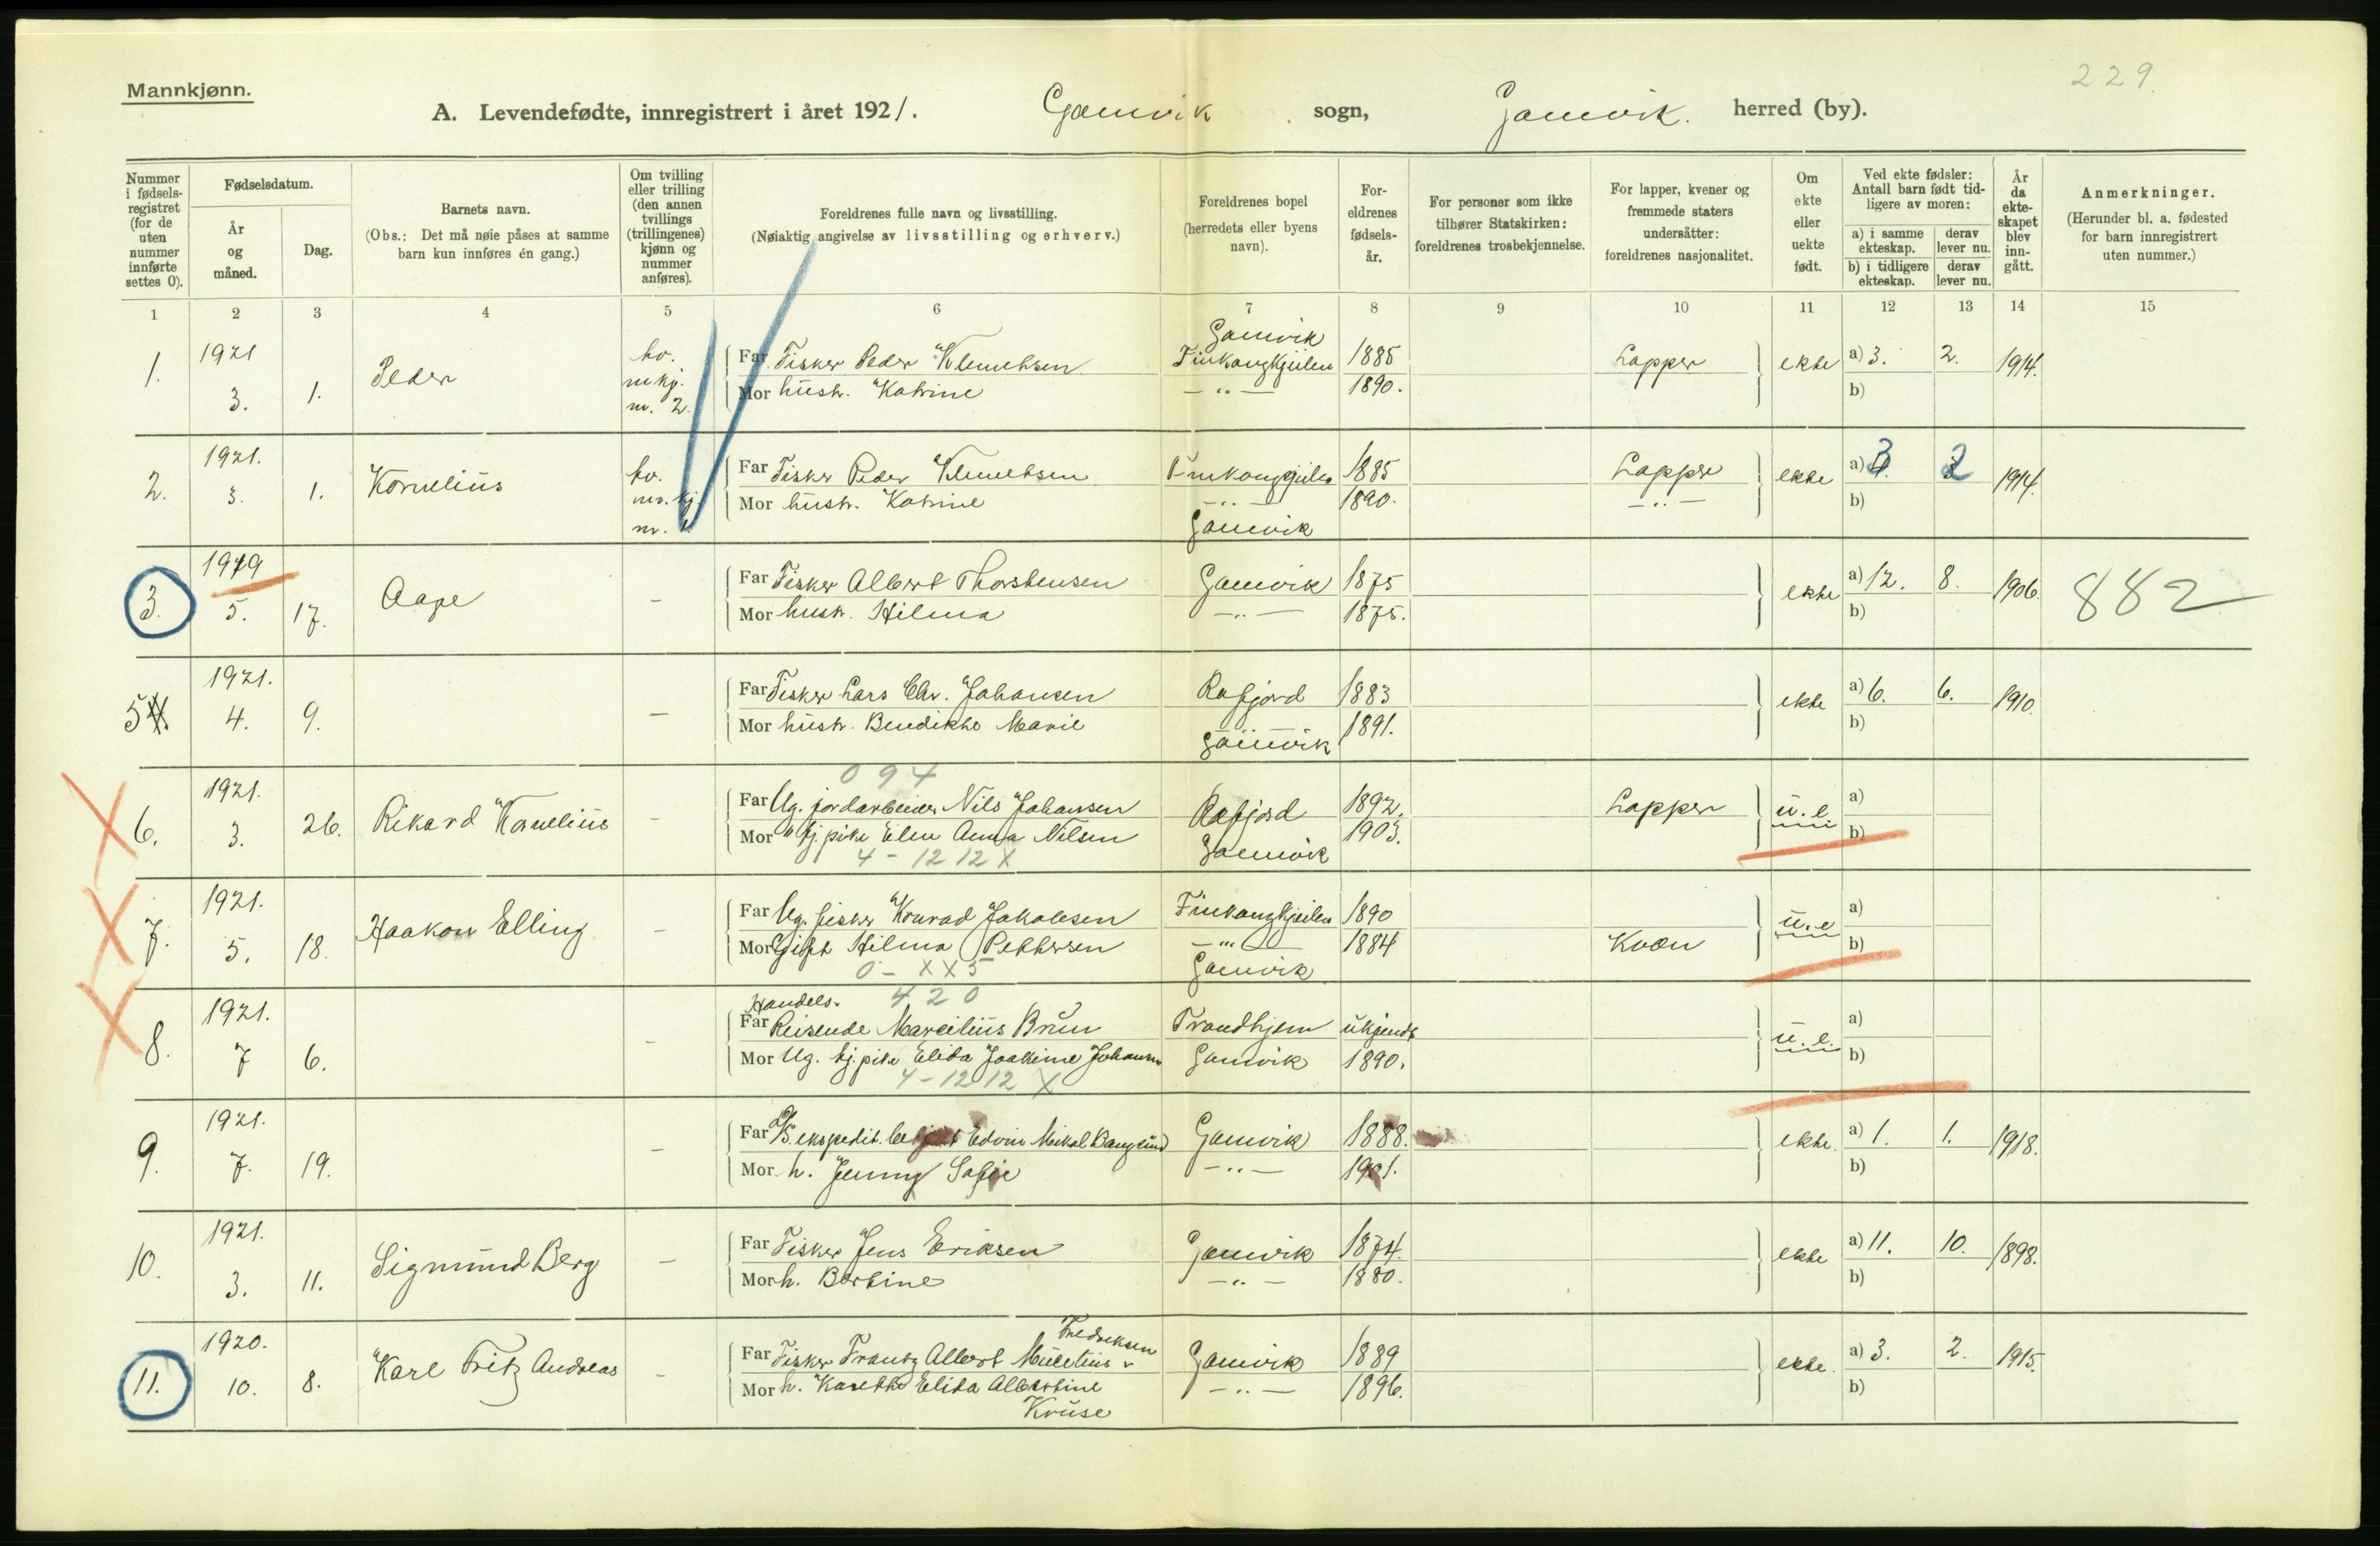 229.
Mannkjønn.
A. Levendefødte, innregistrert i året 1921. Gamvik sogn, Gamvik. herred (by).
Nummer i fødselsregistret (for de uten nummer innførte settes 0).
Fødselsdatum.
År og måned.
Dag.
Barnets navn.
(Obs.: Det må nøie påses at samme barn kun innføres én gang.)
Om tvilling eller trilling (den annen tvillings (trillingenes) kjønn og nummer anføres).
Foreldrenes fulle navn og livsstilling.
(Nøiaktig angivelse av livsstilling og erhverv.)
Foreldrenes bopel (herredets eller byens navn).
Foreldrenes fødselsår.
For personer som ikke tilhører Statskirken: foreldrenes trosbekjennelse.
For lapper, kvener og fremmede staters undersåtter: foreldrenes nasjonalitet.
Om ekte eller uekte født.
Ved ekte fødsler: Antall barn født tidligere av moren:
a) i samme ekteskap.
derav lever nu.
b) i tidligere ekteskap.
derav lever nu.
År da ekteskapet blev inngått.
Anmerkninger.
(Herunder bl. a. fødested for barn innregistrert uten nummer.)
1 2 3 4 5 6 7 8 9 10 11 12 13 14 15
1. 1921 3. 1. Peder tv. mkj. nr. 2.
Far Fisker Peder Klemetsen Gamvik Finkongkjeilen 1885 Lapper ekte a) 3. 2. 1914.
Mor hustr. Katrine -„- 1890. b)
2. 1921. 3. 1. Kornelius tv. m.kj. nr. 1.
Far Fisker Peder Klemetsen Finkongkjeilen 1885 Lapper ekte a) 3 2 1914.
Mor hustr. Katrine -„- 1890. -„- b)
Gamvik
3. 1919 5. 17. Aage -
Far Fisker Albert Thorstensen Gamvik 1875 ekte a) 12. 8. 1906. 882
Mor hustr. Hilma -„- 1875. b)
5 4 1921. 4. 9. -
Far Fisker Lars Chr. Johansen Rafjord 1883 ekte a) 6. 6. 1910.
Mor hustr. Benedikte Marie -„- 1891. b)
Gamvik
094
6. 1921. 3. 26. Rikard Kornelius -
Far Ug. jordarbeider Nils Johansen Rafjord 1892. Lapper u.e. a)
Mor Tj.pike Elen Anna Nilsen Gamvik 1903. b)
4 - 12 12 X
7. 1921. 5. 18. Haakon Elling -
Far Ug. fisker Konrad Jakobsen Finkongkjeilen 1890 u.e a)
Mor Gift Hilma Pettersen -„- 1884 Kvæn b)
0 - X X 5 Gamvik
420
8. 1921. 7 6. -
Handels-
Far Reisende Marcilius Brun Trondhjem ukjendt u.e. a)
Mor Ug. tj.pike Elida Joakime Johansen Gamvik 1890. b)
4 - 12 12 X
9. 1921. 7. 19. -
Far D/S. ekspedit. betjent Edvin Mikal Bangsund Gamvik 1888. ekte. a) 1. 1. 1918.
Mor h. Jenny Sofie -„- 1901. b)
10. 1921. 3. 11. Sigmund Berg -
Far Fisker Jens Eriksen Gamvik 1874. ekte a) 11. 10. 1898.
Mor h. Bertine -„- 1880. b)
11. 1920. 10. 8. Karl Fritz Andreas -
Fredriksen
Far Fisker Frantz Albert Gamvik 1889 ekte. a) 3. 2. 1915.
Mor h. Karette Elida Albertine -„- 1896. b)
Kruse